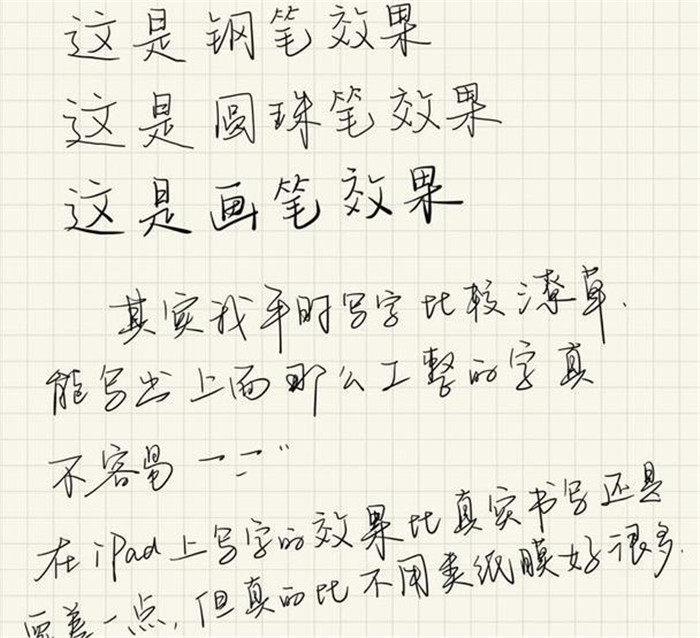 这是钢笔效果
这是圆珠笔效果
这是画笔效果
其实我平时写字比较潦草.
能写出上面那么工整的字真
不容易
在iPad上写字的效果比真实书写还是
差一点,但真的比不用类纸膜好很多.